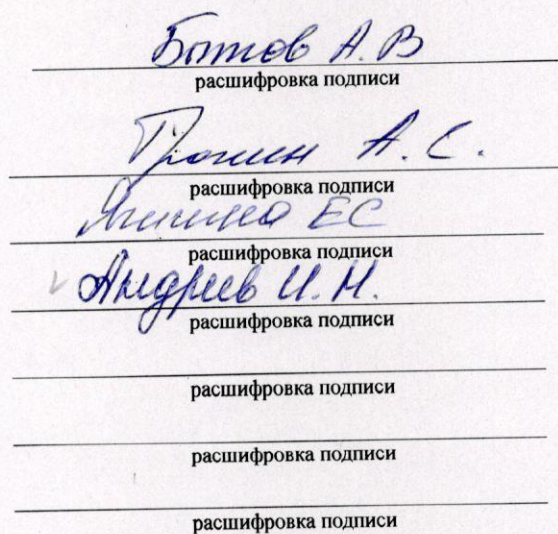 А. В
расшифровка подписи
А. С.
расшифровка подписи
ЕС
расшифровка подписи
Андреев И. Н.
расшифровка подписи
расшифровка подписи
расшифровка подписи
расшифровка подписи